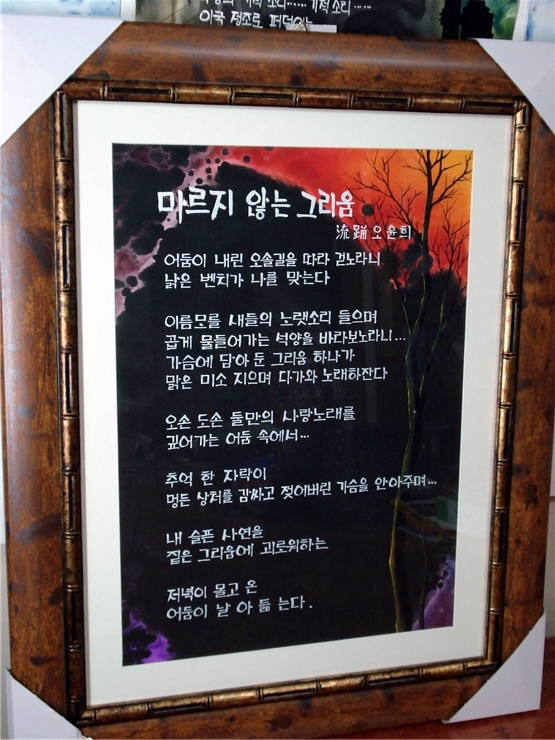 이국 정조로 퍼덕이는
마르지 않는 그리움
流踊 오윤희
어둠이 내린 오솔길을 따라 걷노라니
낡은 벤치가 나를 맞는다
이름모를 새들의 노랫소리 들으며
곱게 물들어가는 석양을 바라보노라니...
가슴에 담아 둔 그리움 하나가
맑은 미소 지으며 다가와 노래하잔다
오손 도손 둘만의 사랑노래를
깊어가는 어둠 속에서...
추억 한 자락이
멍든 상처를 감싸고 젖어버린 가슴을 안아주며...
내 슬픈 사연을
짙은 그리움에 괴로워하는
저녁이 몰고 온
어둠이 날 아 듦 는다.